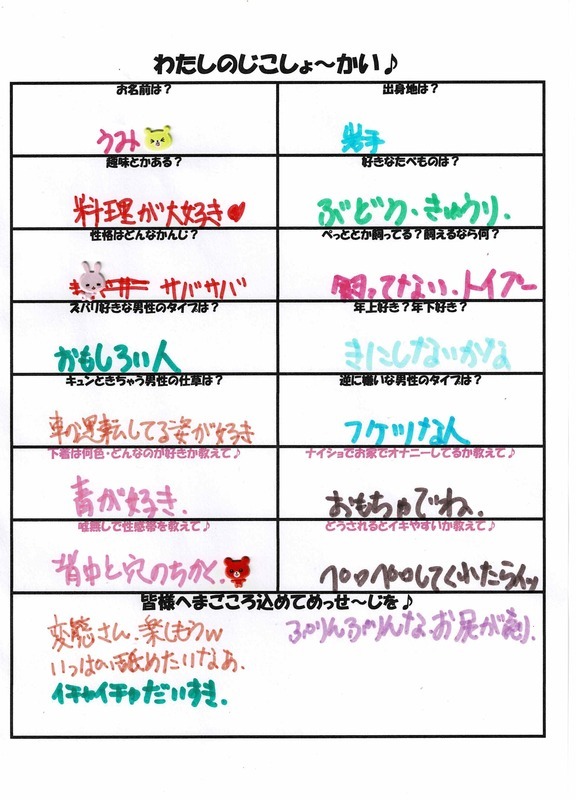 わたしのじこしょ～かい♪
お名前は？
うみ
出身地は？
岩手
趣味とかある？
料理が大好き♥
好きなたべものは？
ぶどう・きゅうり.
性格はどんなかんじ？
サバサバ
ぺっととか飼ってる？飼えるなら何？
飼ってない.トイプー
ズバリ好きな男性のタイプは？
おもしろい人
年上好き？年下好き？
きにしないかな
キュンときちゃう男性の仕草は？
車運転してる姿が好き
逆に嫌いな男性のタイプは？
フケツな人
下着は何色・どんなのが好きか教えて♪
青が好き.
ナイショでお家でオナニーしてるか教えて♪
おもちゃでね.
唯無しで性感帯を教えて♪
背中と穴のちかく.
どうされるとイキやすいか教えて♪
ペロペロしてくれたらイッ
皆様へまごころ込めてめっせ～じを♪
変態さん.楽しもうw
いっぱい舐めたいなぁ.
イチャイチャだいすき.
ぷりんぷりんな.お尻が売り.